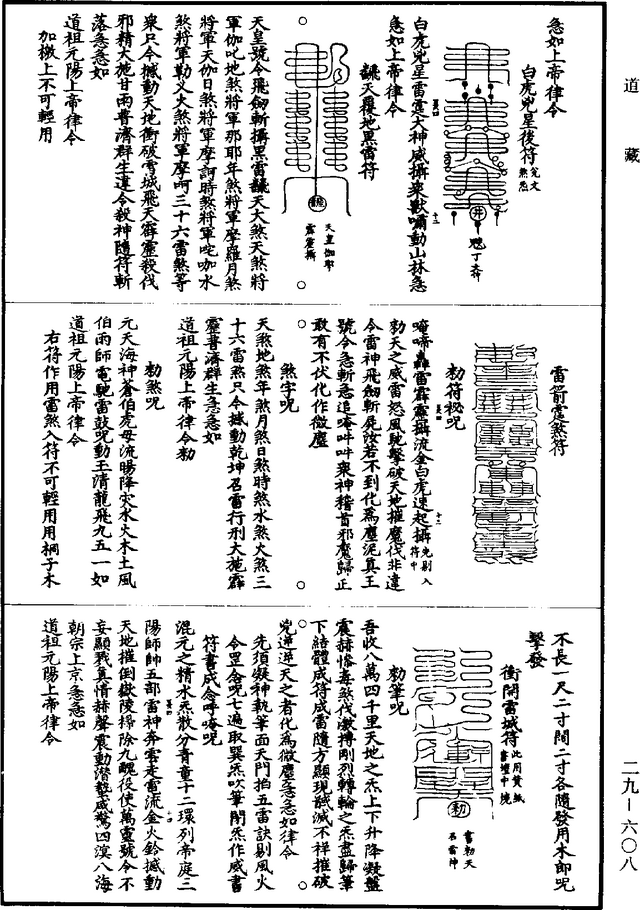 道藏
急如上帝律令
白虎兇星後符
完文煞炁
魒丁奔
白虎兇星雷霆大神威攝衆獸嘯動山林急
急如上帝律令
䨻天羅地黑雷符
天皇伽耶
霹靂攝
天皇號令飛劒斬攝黑雷䨻天大煞天煞將
軍伽叱地煞將軍那耶年煞將軍摩羅月煞
將軍天伽日煞將軍摩訶時煞將軍咤咖水
煞將軍勒义火煞將軍摩呵三十六雷煞等
衆只今撼動天地衝破雪城飛天霹靂殺伐
邪精大施甘雨普濟群生違令殺神隨符斬
落急急如
道祖元陽上帝律令
加檄上不可輕用
雷箭霆煞符
唵啼轟雷霹靂攝流金白虎速起攝
先剔入符中
勑天之威雷怒風馳擊破天地摧魔伐非違
令雷神飛劒斬屍汝若不到化爲塵泥眞王
號令急斬急追唵吽吽衆神稽首邪魔歸正
敢有不伏化作微塵
勑符祕呪
煞字呪
天煞地煞年煞月煞日煞時煞水煞火煞三
十六雷煞只今撼動乾坤召雷行刑大施霹
靂普濟群生急急如
道祖元陽上帝律令勑
勑煞呪
元天海神蒼伯虎母流暘降灾水火木土風
伯雨師電馳雷鼓呪動玉清龍飛九五一如
道祖元陽上帝律令
右符作用雷煞入符不可輕用用桐子木
不長一尺二寸闊二寸各隨發用木郎呪
擊發
衝開雷城符
此用黃紙書壇中燒
書勑天
召雷神
勑筆呪
吾收八萬四千里天地之炁上下升降凝盤
震赫慘毒煞伐激搏剛烈轉輪之炁盡歸筆
下結體成符成雷隨方顯現誅滅不祥摧破
兇逆逆天之者化爲微塵急急如律令
先須凝神執筆面天門拍五雷訣剔風火
令罡念呪七遍取巽炁吹筆閉炁作威書
符書成念呼唵呪
混元之精水炁散分青童十二環列帝庭三
陽師帥五部雷神奔雲走電流金火鈴撼動
天地摧倒嶽陵掃除九醜役使萬靈號令不
妄顯戮眞情赫聲震動潛蟄咸驚四溟八海
朝宗上京急急如
道祖元陽上帝律令
二九—六〇八